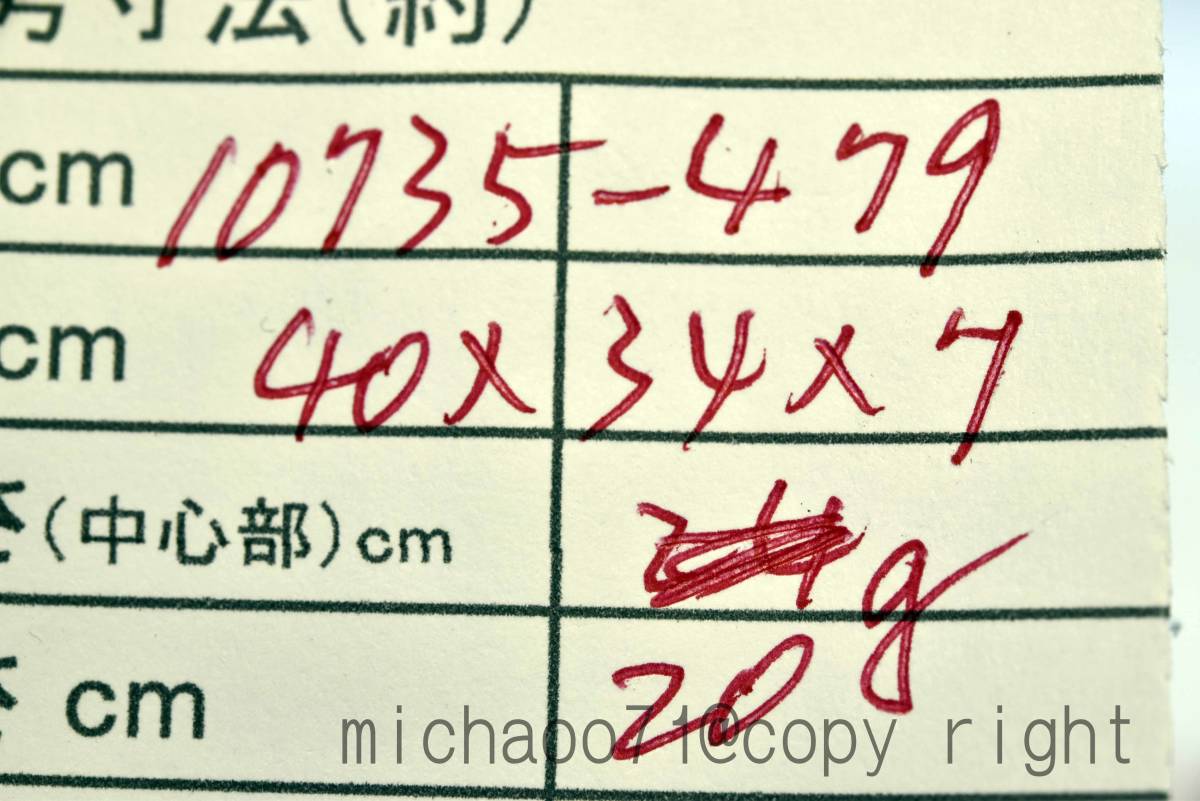 寸法(約)
cm 10735-479
cm 40x34x7
(中心部)cm g
cm 20
michaoo71@copy right